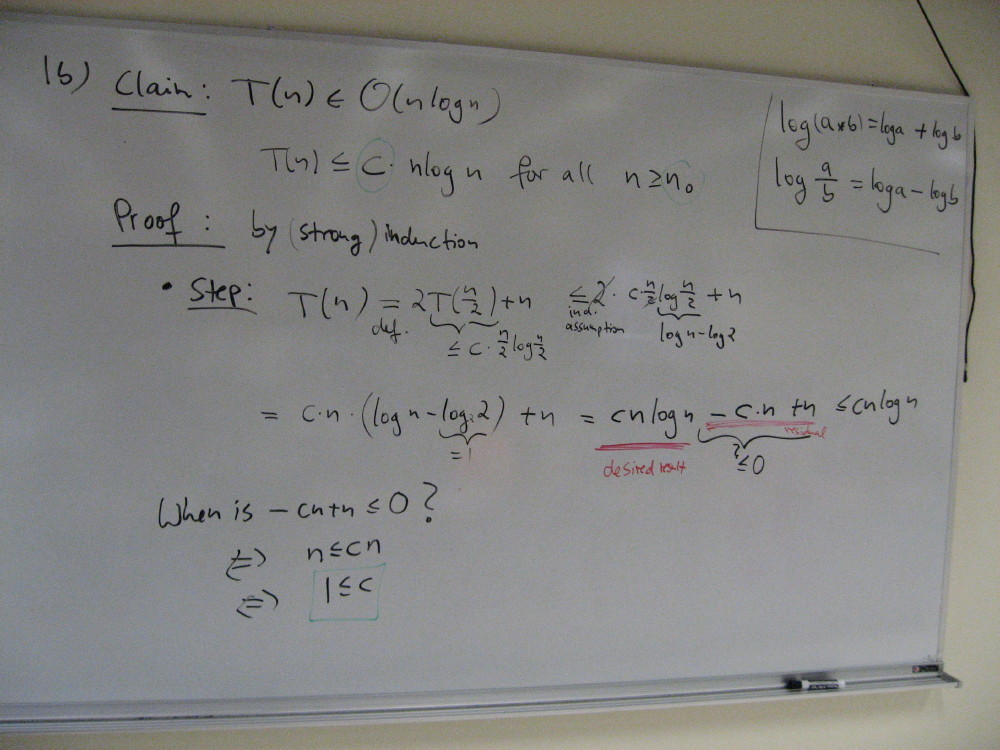 1b) Claim: T(n) ∈ O(n log n)
T(n) ≤ c · n log n for all n ≥ n₀
log(a*b) = log a + log b
log a/b = log a - log b
Proof: by (strong) induction
• Step: T(n) = 2T(n/2) + n ≤ 2 · c n/2 log n/2 + n
def. ≤ c · n/2 log n/2 ind. assumption log n - log 2
= c·n · (log n - log₂ 2) + n = cn log n - c·n + n ≤ cn log n
= 1 desired result residual ? ≤ 0
When is - cn + n ≤ 0?
⇔ n ≤ cn
⇔ 1 ≤ c